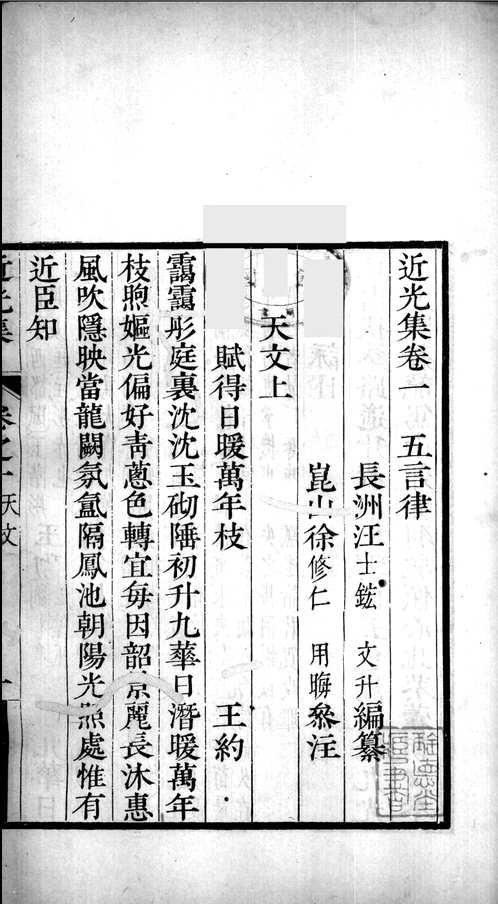 近光集卷一 五言律
長洲汪士鋐 文升編纂
崑山徐修仁 用晦叅注
天文上
賦得日暖萬年枝 王約
靄靄彤庭裏沈沈玉砌陲初升九華日潛暖萬年
枝煦嫗光偏好靑蔥色轉宜每因韶景麗長沐惠
風吹隱映當龍闕氛氳隔鳳池朝陽光照處惟有
近臣知
近光集 卷之一天文 一